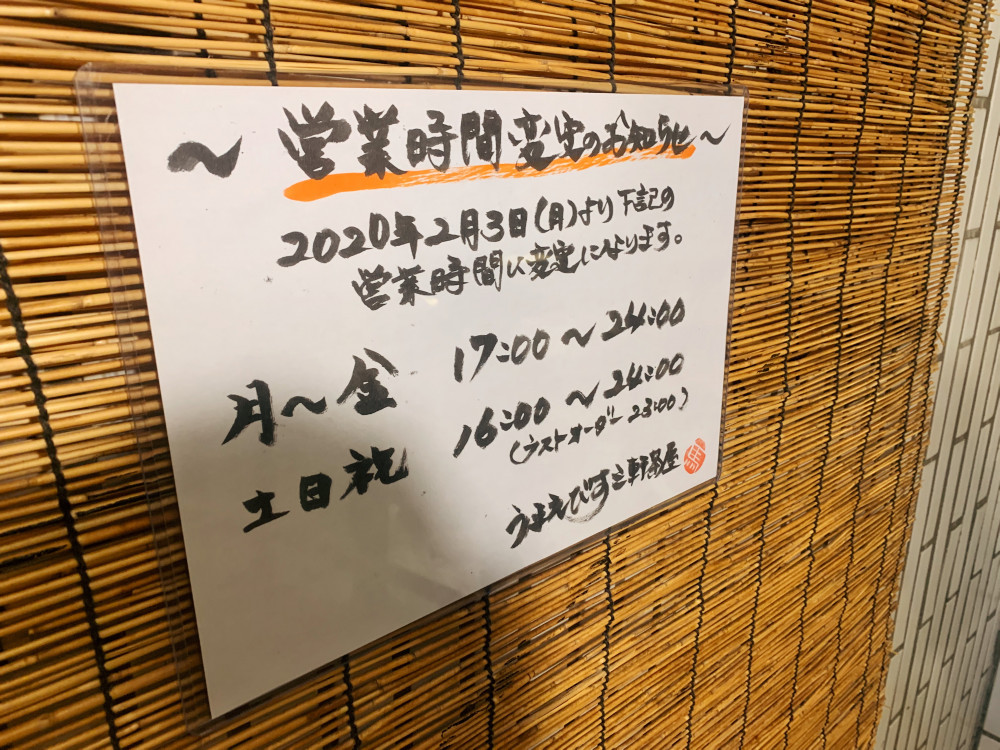 ～営業時間変更のお知らせ～
2020年2月3日(月)より下記の
営業時間に変更になります。
月～金 17:00～24:00
土日祝 16:00～24:00
(ラストオーダー 23:00)
うまえびす三軒茶屋